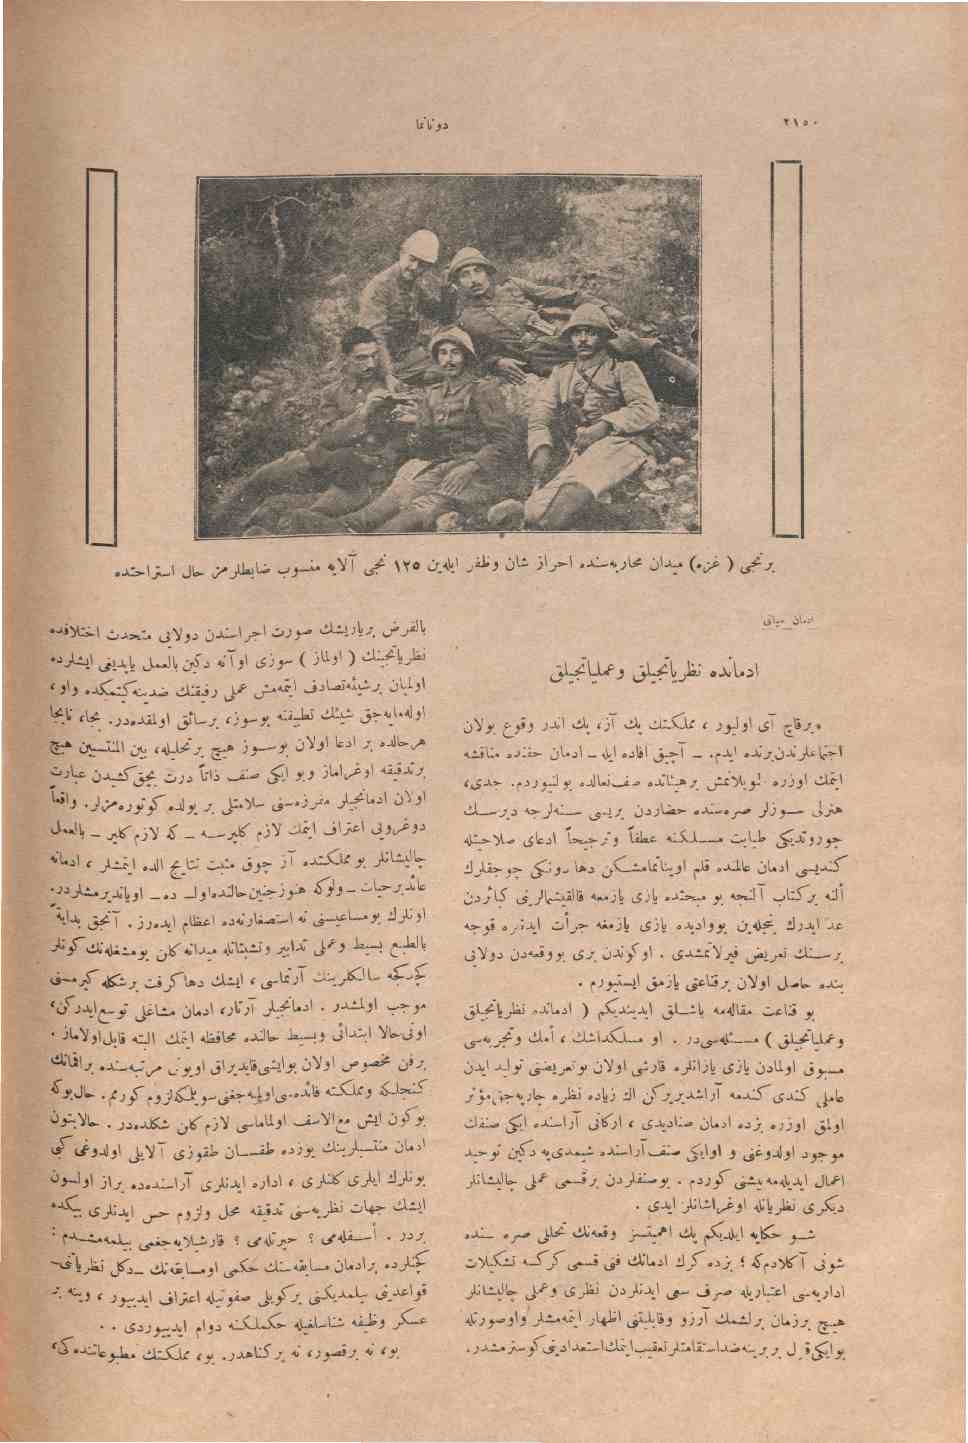 ٢١٥٠
دونانما
برنجی ( غزه ) میدان محاربه‌سنده احراز شان وظفر ایله‌ین ١٢٥ نجی آلایه منسوب ضابطلرمز حال استراحتده
ادمان حیاتی
ادمانده نظریاتجیلق وعملیاتجیلق
برقاچ آی اولیور ، مملکتك پك آز، پك اندر وقوع بولان
اجتماعلرندن برنده ایدم. ـ آچیق افاده ایله ـ ادمان حقنده مناقشه
ایتمك اوزره طوپلانمش برهیئتده صف نعالده بولنیوردم. جدی،
هزلی سوزلر صره‌سنده حضاردن بریسی سنه‌لرجه دیرسك
چوروتدیکی طبابت مسلکنه عطفاً وترجیحاً ادعای صلاحیتله
کندیسی ادمان عالمنده قلم اویناتمامشکن دها دونکی چوجقلرك
النه برکتاب آلنجه بو مبحثده یازی یازمغه قالقیشمالرینی کبائردن
عد ایدرك بیلمه‌ین بووادیده یازی یازمغه جرأت ایدنلره قوجه
برسنك تعریض فیرلاتمشدی . اوکوندن بری بووقعه‌دن دولایی
بنده حاصل اولان برقناعتی یازمق ایستیورم .
بو قناعت مقاله‌مه باشلق ایدیندیکم ( ادمانده نظریاتجیلق
وعملیاتجیلق ) مسئله‌سی‌در . او مسلکداشك ، أمك وتجربه‌سی
مسبوق اولمادن یازی یازانلره قارشی اولان بوتعریضنی تولید ایدن
عاملی کندی کندمه آراشدیریرکن اك زیاده نظره چاربه‌جق مؤثر
اولمق اوزره بزده ادمان صنادیدی ، ارکانی آراسنده ایکی صنفك
موجود اولدوغنی و اوایکی صنف آراسنده شیمدی‌یه دکین توحید
اعمال ایدیله‌مه‌یشنی کوردم . بوصنفلردن برقسمی عملی چالیشانلر
دیکری نظریاتله اوغراشانلر ایدی .
شو حکایه ایلدیکم پك اهمیتسز وقعه‌نك تحلیلی صره سنده
شونی آکلادم‌که ؛ بزده کرك ادمانك فنی قسمی کرکسه تشکیلات
اداریه‌سی اعتباریله صرف سعی ایدنلردن نظری وعملی چالیشانلر
هیچ برزمان برلشمك آرزو وقابلیتنی اظهار ایتمه‌مشلر واوصورتله
بوایکی قول بربرینه ضد استقامتلر تعقیب ایتمك استعدادینی کوسترمشدر.
بالفرض برباریشك صورت اجراسندن دولایی متحدث اختلافده
نظریاتجینك ( اولماز ) سوزی اوآنه دکین بالعمل یاپدیغی ایشلرده
اولمیان برشیئه تصادف ایتمه‌مش عملی رفیقنك ضدینه کیتمکده واو ،
اوله‌مایه‌جق شیئك تطبیقنه بوسوز، برسائق اولمقده‌در. بجا، نابجا
هرحالده بر ادعا اولان بوسوز هیچ برتحلیله، بین المنتسبین هیچ
برتدقیقه اوغراماز وبو ایکی صنف ذاتاً درت بچق کشیدن عبارت
اولان ادمانجیلر مفرزه‌سنی سلامتلی بر یولده کوتوره‌مزلر. واقعاً
دوغرویی اعتراف ایتمك لازم کلیرسه ـ که لازم کلیر ـ بالعمل
چالیشانلر بو مملکتده آز چوق مثبت نتایج الده ایتمشلر ، ادمانه
عائد بر حیات ـ ولوکه هنوز جنین حالنده اولسه ده ـ اویاندیرمشلردر.
اونلرك بومساعیسنی نه استصغار نه‌ده اعظام ایده‌رز . آنجق بدایةً
بالطبع بسیط وعملی تدابیر وتشبثاتله میدانه کلن بومشغله‌نك کونلر
کچدکجه سالکلرینك آرتماسی ، ایشك دها کرفت برشکله کیرمسنی
موجب اولمشدر . ادمانجیلر آرتار، ادمان مشاغلی توسع ایدرکن،
اونی حالا ابتدائی وبسیط حالنده محافظه ایتمك البته قابل اولاماز .
برفن مخصوص اولان بوایشی قایدیراق اویونی مرتبه‌سنده براقمانك
کنجلکه ومملکته فائده‌سی اولمیه‌جغنی سویلمکه لزوم کورمم . حال بوکه
بوکون ایش مع‌الاسف اولماماسی لازم کلن شکلده‌در . حالا بتون
ادمان منتسبلرینك یوزده طقسان طقوزی آلایلی اولدوغی کبی
بونلرك ایلری کلنلری ، اداره ایدنلری آراسنده‌ده براز اولسون
ایشك جهات نظریه‌سنی تدقیقه محل ولزوم حس ایدنلری بیکده
بردر . أسفله‌می ؟ حیرتله‌می ؟ قارشیلایه‌جغمی بیلمه‌مشدم :
کچنلرده برادمان مسابقه‌سنك حکمی اومسابقه‌نك ـ دکل نظریاتنی ـ
قواعدینی بیلمدیکنی برکوپلی صفوتیله اعتراف ایدییور ، وینه بر
عسکر وظیفه شناسلغیله حکملکنه دوام ایدییوردی . .
بو، نه برقصور، نه برکناهدر. بو، مملکتك مطبوعاتنده‌کی،